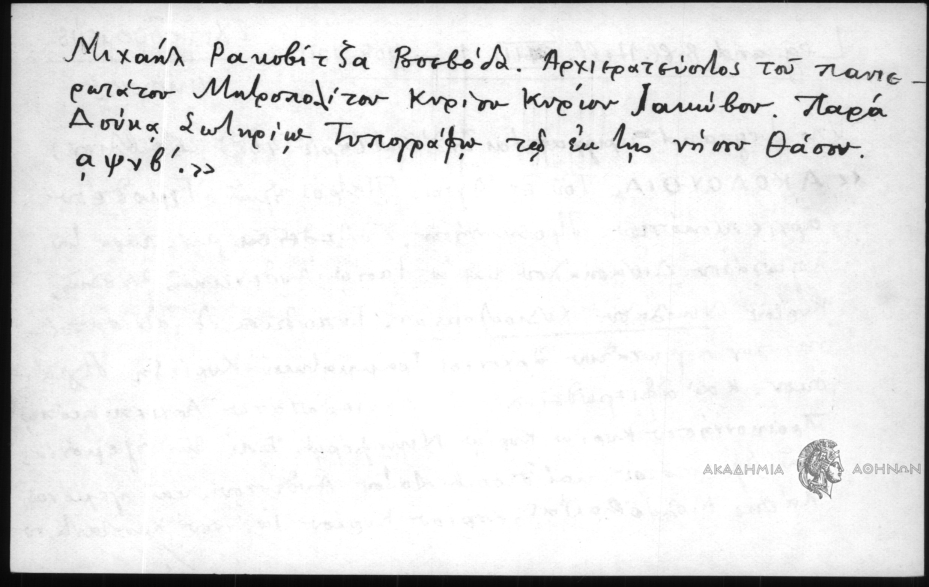 Μιχαήλ Ρακοβίτζα Βοεβόδα. Ἀρχιερατεύοντος τοῦ πανιε-
ρωτάτου Μητροπολίτου Κυρίου Κυρίου Ἰακώβου. Παρά
Δούκα Σωτηρίῳ Τυπογράφῳ τῷ ἐκ τῆς νήσου Θάσου.
αψνβ΄.»
ΑΚΑΔΗΜΙΑ ΑΘΗΝΩΝ